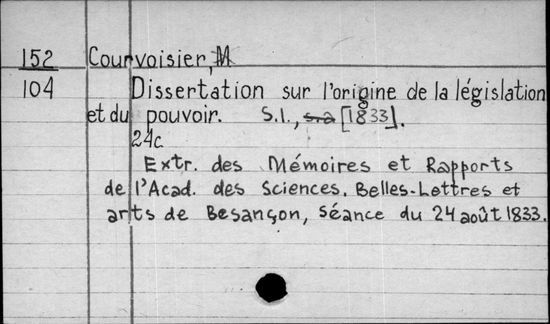 152 Courvoisier, M
104 Dissertation sur l'origine de la législation
et du pouvoir. S.l., s.a [1833].
24c
Extr. des Mémoires et Rapports
de l'Acad. des Sciences. Belles-Lettres et
arts de Besançon, Séance du 24 août 1833.